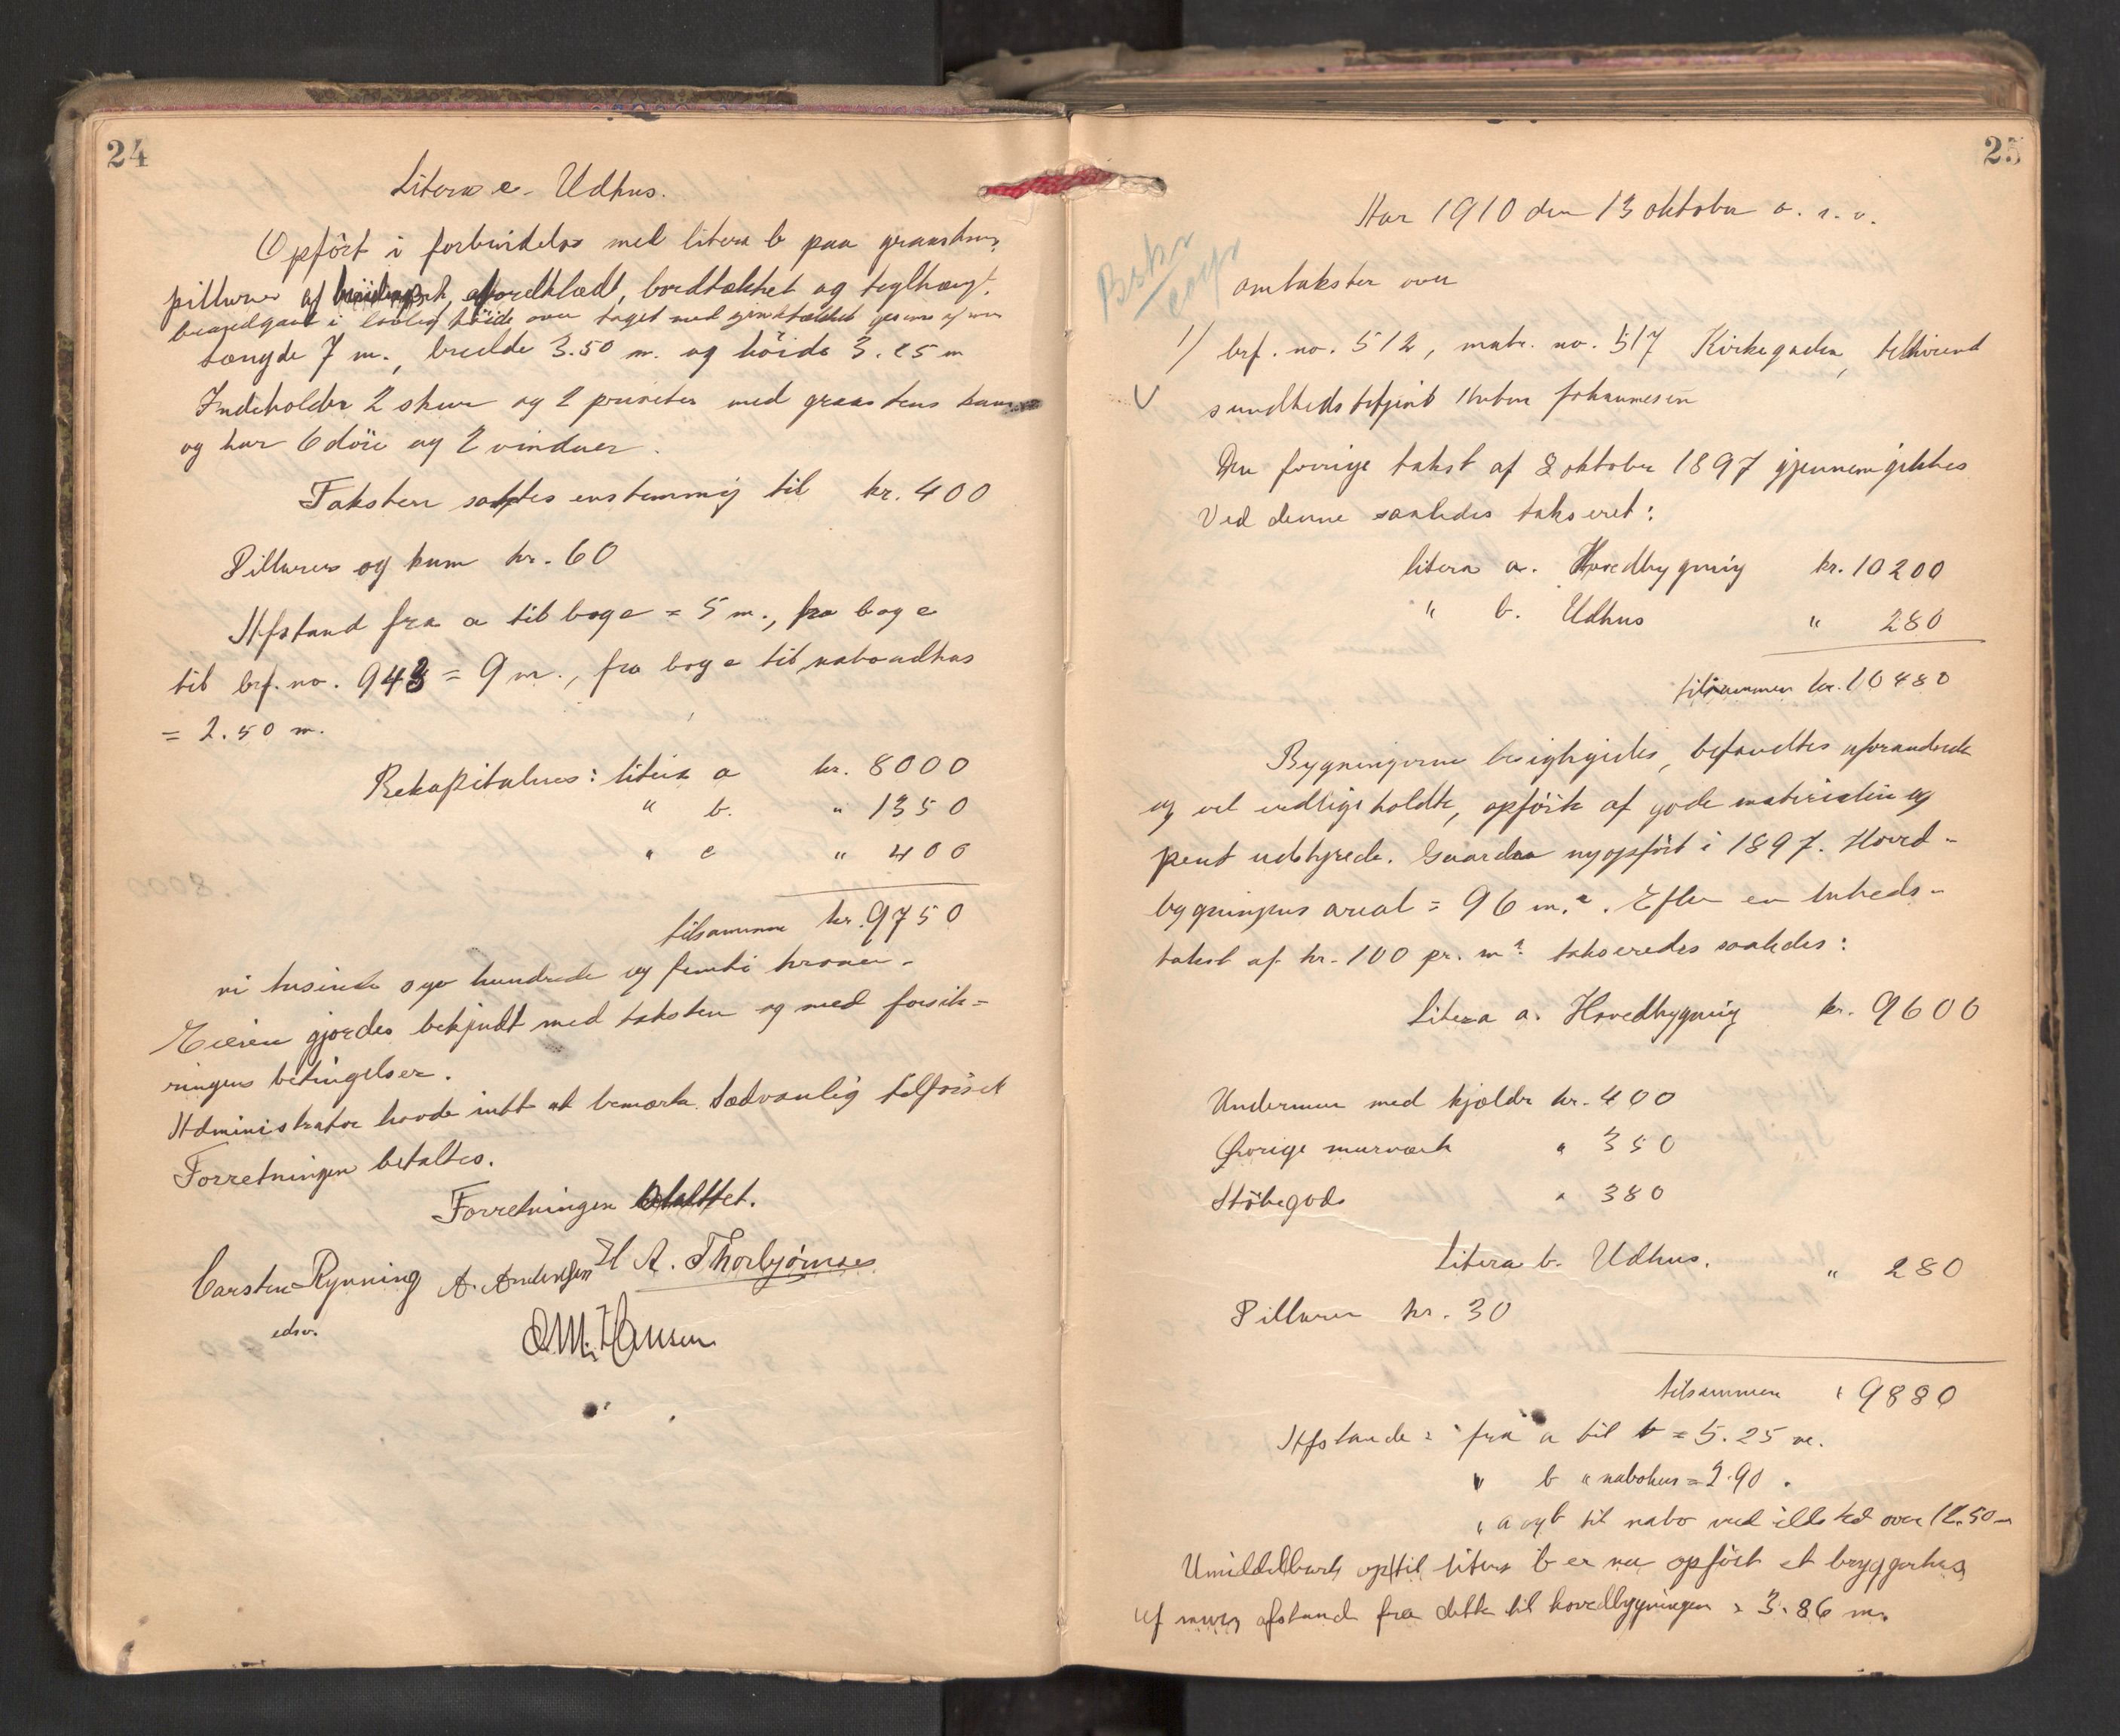 24
Litera c. Udhus.
Opført i forbindelse med litera b paa graastens
pillarer af bindingsverk, bordklædt, bordtækket og teglhængt.
brandgavl i lovlig høide over taget med zinktækket gesims af mur
Længde 7 m., bredde 3.50 m. og høide 3.25 m
Indeholder 2 skur og 2 priveter med graastens kum
og har 6 døre og 2 vinduer.
Taksten sattes enstemmig til kr. 400
Pillarer og kum kr. 60
Afstand fra a til b og c = 5 m., fra b og c
til brf. no. 943 = 9 m., fra b og c til naboudhus
= 2.50 m.
Rekapitulres: litera a kr. 8000
" b. " 1350
" c " 400
tilsammen kr. 9750
ni tusinde syv hundrede og femti kroner.
Eieren gjordes bekjendt med taksten og med forsik-
ringens betingelser.
Administrator havde intet at bemærke. Sædvanlig tilførsel
Forretningen betaltes.
Forretningen sluttet.
Carsten Rynning A. Andersen H A. Thorbjørnsen
edsv.
O.M. Hansen
25
Aar 1910 den 13 oktober o. s. v.
omtakster over
1/ brf. no. 512, matr. no. 517 Kirkegaden, tilhørende
sundhedsbetjent Anton Johannesen
Den forrige takst af 8 oktober 1897 gjennemgikkes
Ved denne saaledes takseret:
litera a. Hovedbygning kr. 10200
" b. Udhus " 280
tilsammen kr. 10480
Bygningerne besigtigedes, befandtes uforandrede
og vel vedligeholdte, opført af gode materialier og
pent udstyrede. Gaarden nyopført i 1897. Hoved-
bygningens areal = 96 m.². Efter en enheds-
takst af kr. 100 pr. m² takseredes saaledes:
Litera a. Hovedbygning kr. 9600
Undermur med kjælder kr. 400
Øvrige murverk " 350
Støbegods " 380
Litera b. Udhus. " 280
Pillarer kr. 30
tilsammen " 9880
Afstande: fra a til b = 5.25 m.
" b " nabohus = 2.90.
" a og b til nabo med ildsted over 12.50 m
Umiddelbart optil litera b er nu opført et bryggerhus
af mur, afstand fra dette til hovedbygningen = 3.86 m.